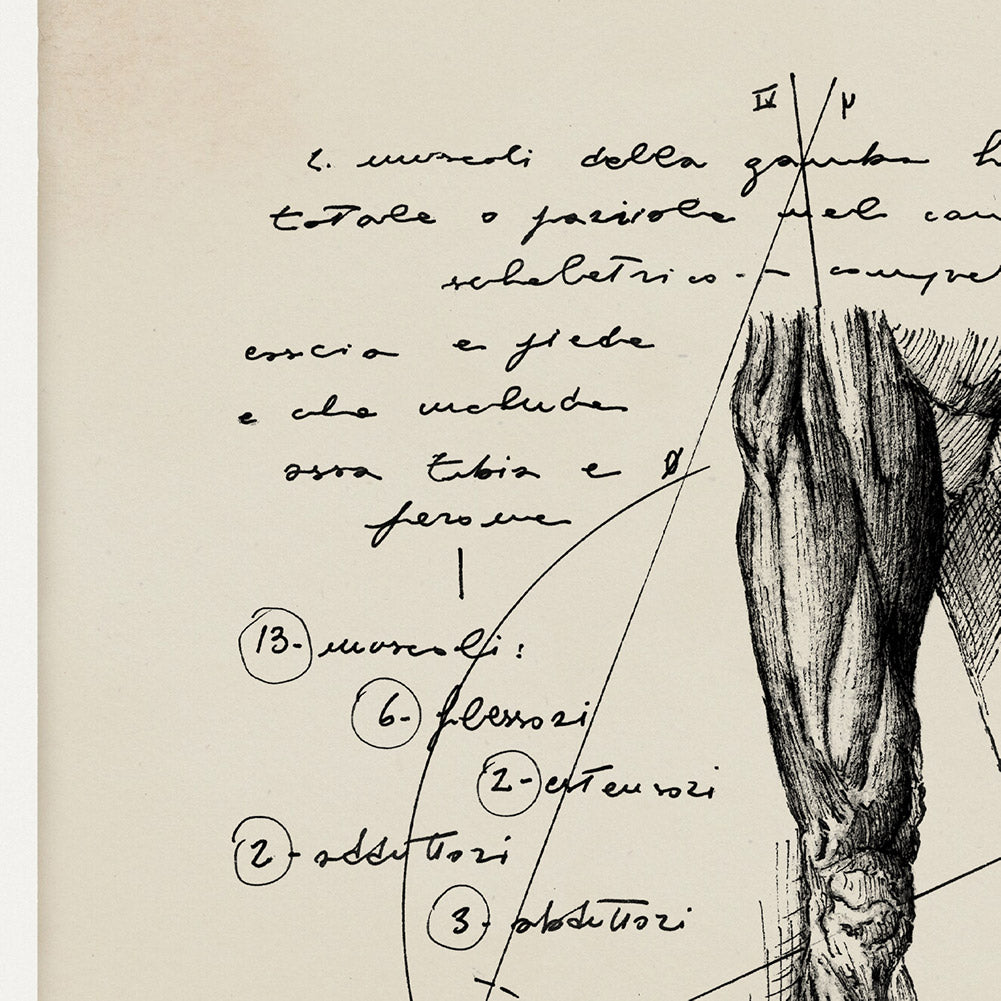 IV
muscoli della gamba
totale o parziale nel
scheletrico -
coscia e piede
e che include
ossa tibia e
perone
13- muscoli:
6- flessori
2- estensori
2- adduttori
3- abduttori